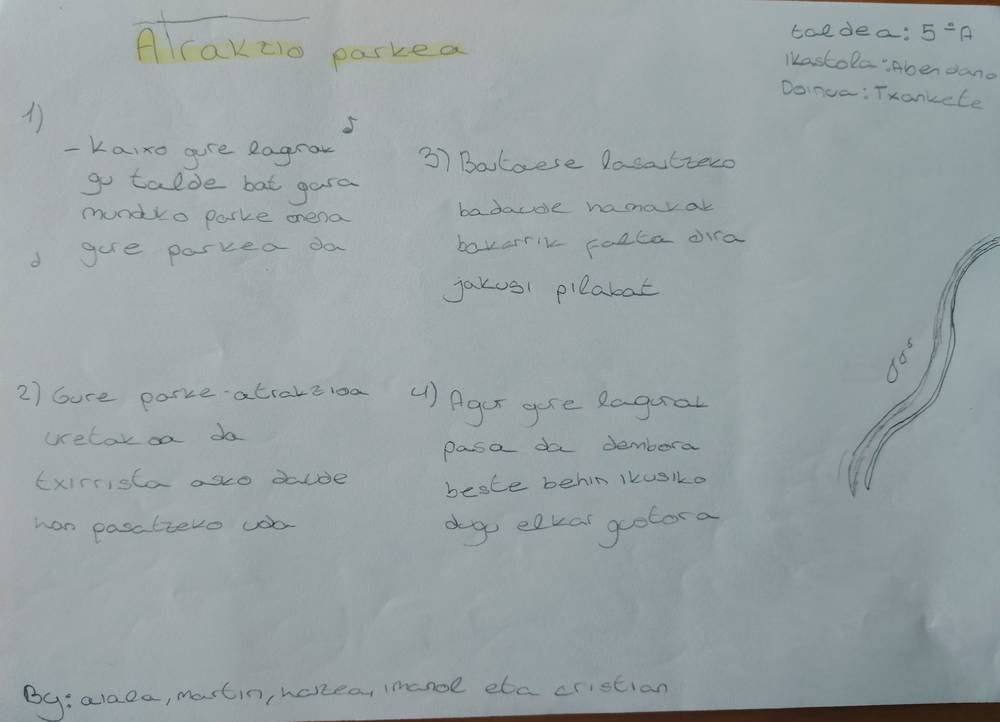 Atrakzio parkea
taldea: 5ºA
Ikastola: Abendano
Doinua: Txankete
1)
- Kaixo gure lagnak
gu talde bat gara
munduko parke onena
gure parkea da
2) Gure parke-atrakzioa
uretakoa da
txirrista asko daude
han pasatzeko uda
3) Baitaere lasaitzeko
badaude hamakak
bakarrik falta dira
jakusi pilabat
4) Agur gure lagunak
pasa da dembora
beste behin ikusiko
degu elkar gustora
By: aiala, martin, haizea, imanol eta cristian